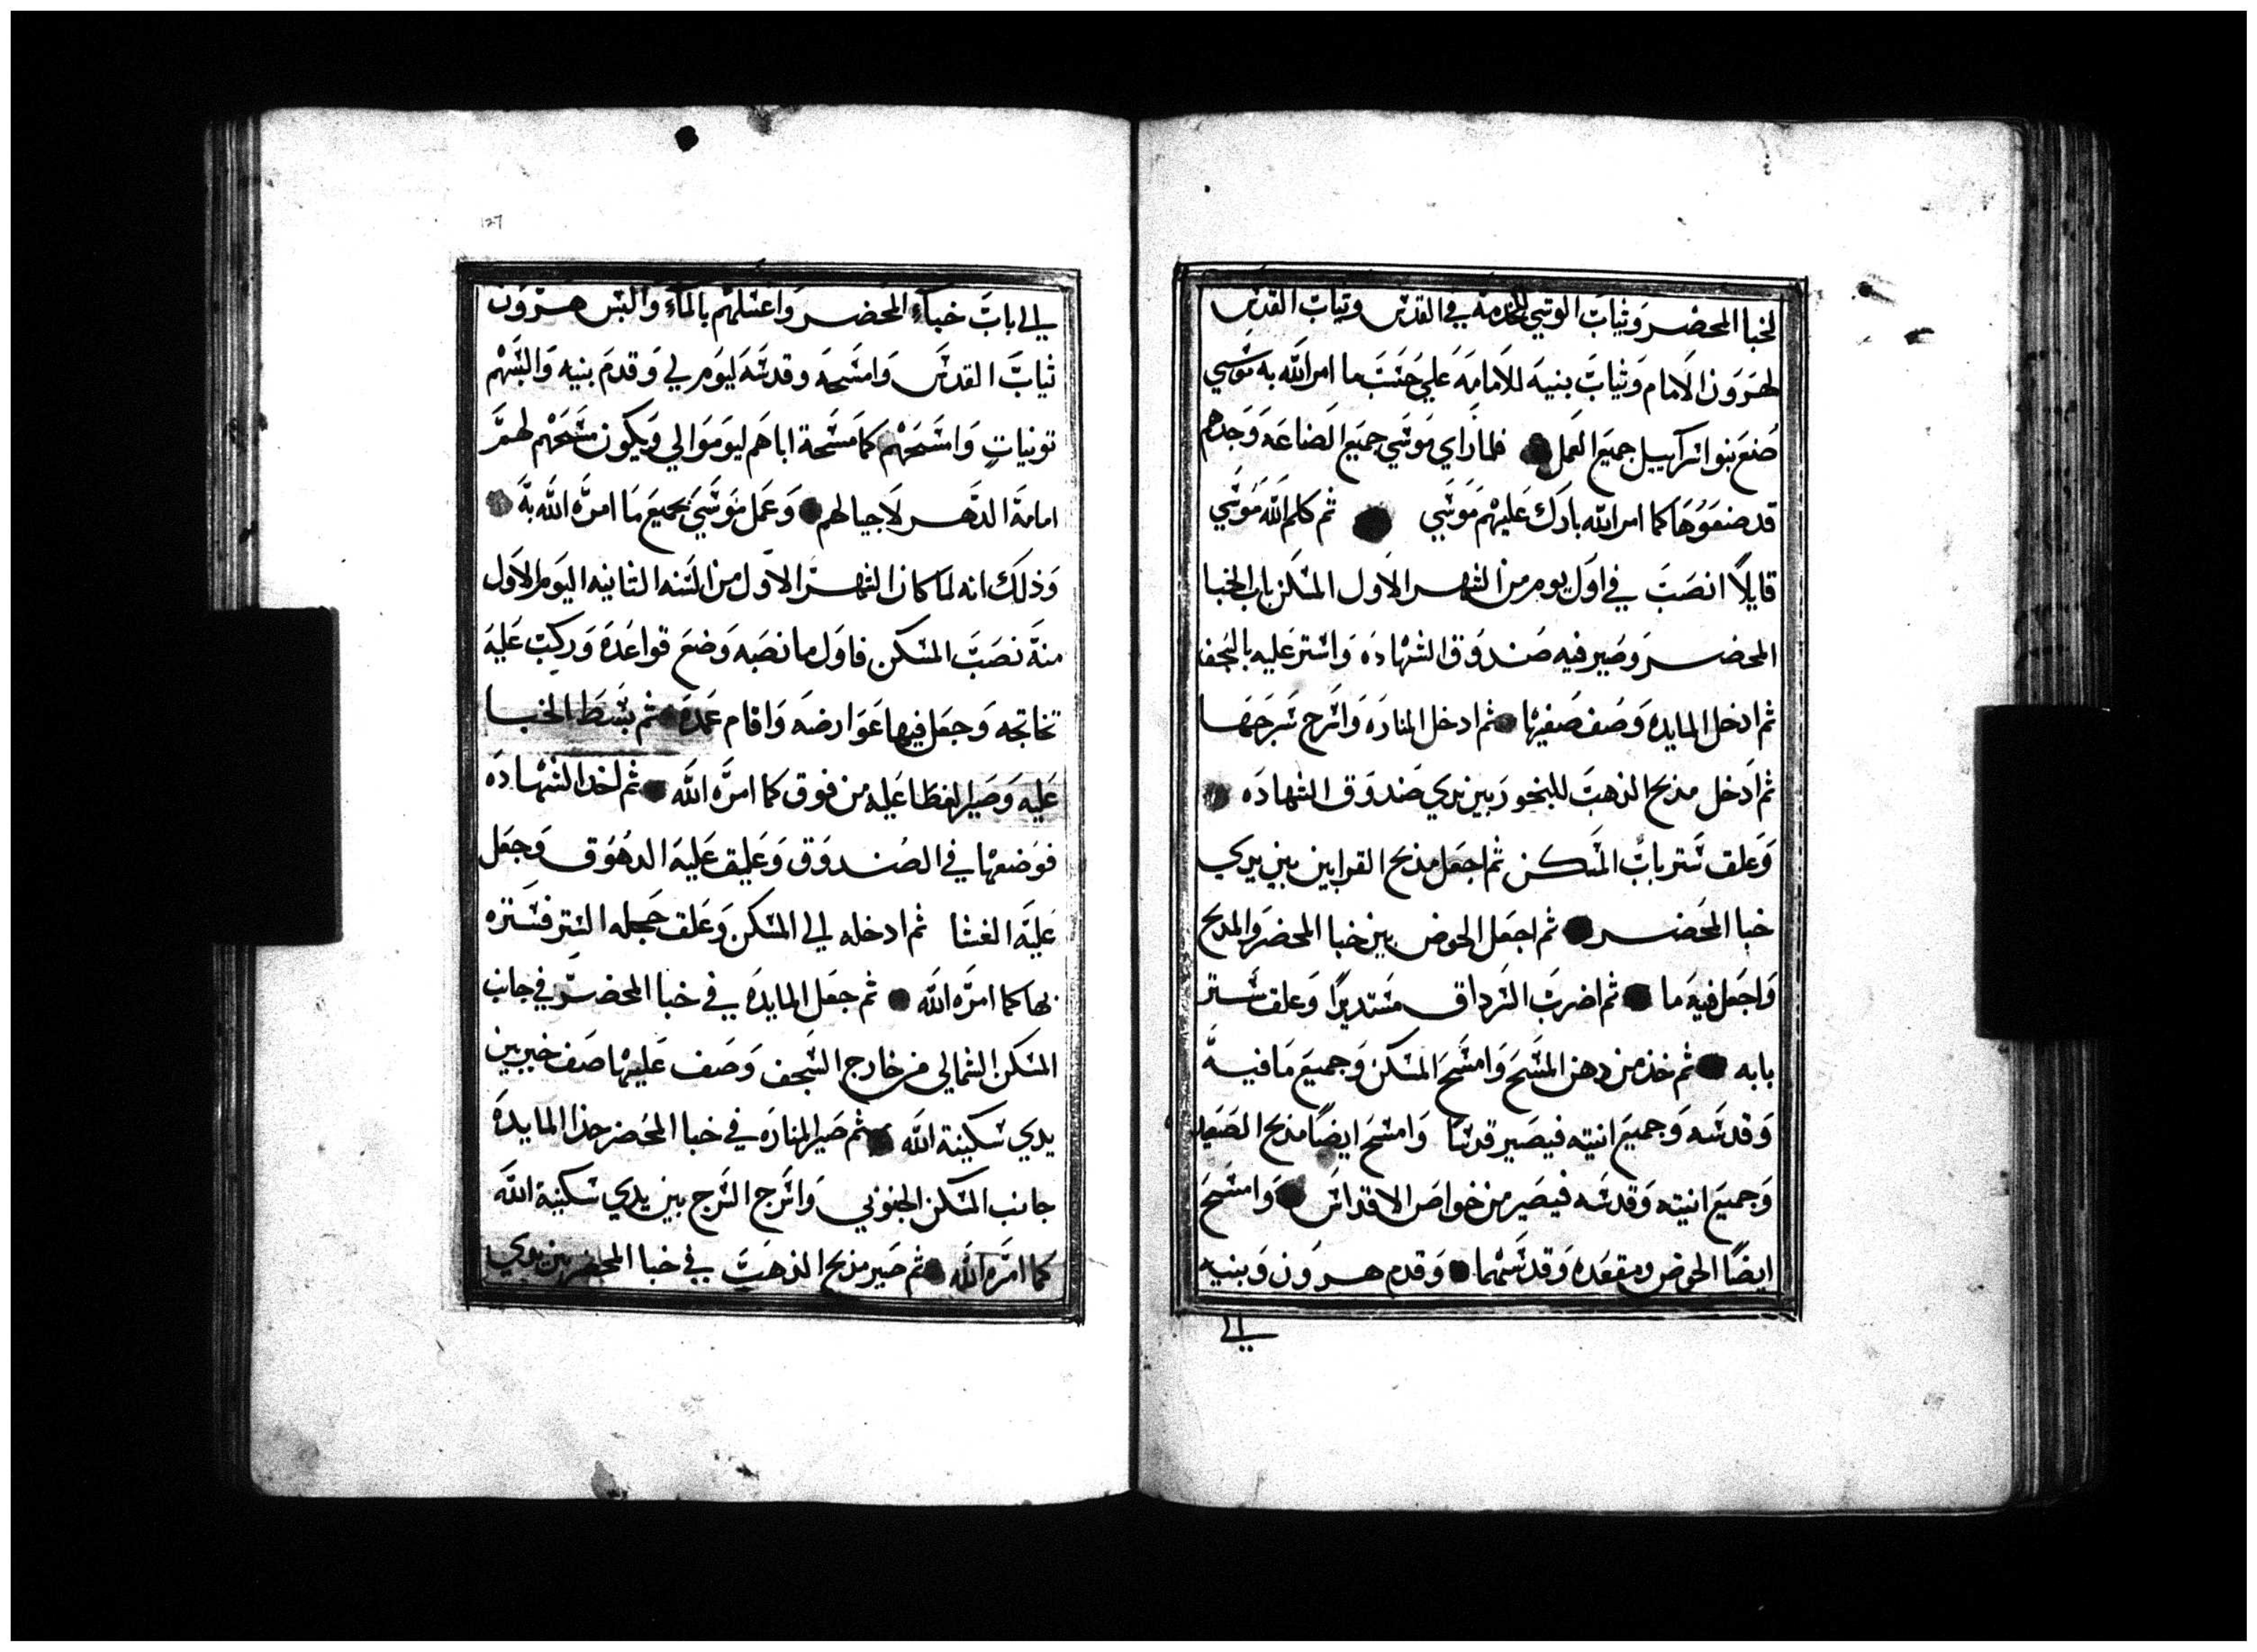 لخبا المحضر وثياب الوشي للخدمة في القدس وثياب القدس
لهرون الامام وثياب بنيه للامامه علي حسب ما امر الله به موسي
صنع بنوا اسراييل جميع العمل فلما راي موسي جميع الصناعه وجدهم
قد صنعوها كما امر الله بارك عليهم موسي ثم كلم الله موسي
قايلا انصب في اول يوم من الشهر الاول المسكن باب الخبا
المحضر وصير فيه صندوق الشهاده واستر عليه بالسجف
ثم ادخل المايده وصف صفيها ثم ادخل المناره واسرج سرجها
ثم ادخل مذبح الذهب للبخور بين يدي صندوق الشهاده
وعلق ستر باب المسكن ثم اجعل مذبح القرابين بين يدي
خبا المحضر ثم اجعل الحوض بين خبا المحضر والمذبح
واجعل فيه ما ثم اضرب السرداق مستديرا وعلق ستر
بابه ثم خذ من دهن المسح وامسح المسكن وجميع ما فيه
وقدسه وجميع انيته فيصير قدسا وامسح ايضا مذبح الصعيد
وجميع انيته وقدسه فيصير من خواص الاقداس وامسح
ايضا الحوض ومقعده وقدسهما وقدم هرون وبنيه
الي
127
الي باب خباء المحضر واغسلهم بالماء والبس هرون
ثياب القدس وامسحه وقدسه ليوم لي وقدم بنيه والبسهم
تونيات وامسحهم كما مسحة اباهم ليوموا لي ويكون مسحهم لهم
امامة الدهر لاجيالهم وعمل موسي بجميع ما امره الله به
وذلك انه لما كان الشهر الاول من السنه الثانيه اليوم الاول
منه نصب المسكن فاول ما نصبه وضع قواعده وركب عليه
تخاتجه وجعل فيها عوارضه واقام عمده ثم بسط الخبا
عليه وصير الغطا عليه من فوق كما امره الله ثم اخد الشهاده
فوضعها في الصندوق وعلق عليه الدهوق وجعل
عليه الغشا ثم ادخله الي المسكن وعلق حجله الستر فستره
بها كما امره الله ثم جعل المايده في خبا المحضر في جانب
المسكن الشمالي من خارج السجف وصف عليها صف خبز بين
يدي سكينة الله ثم صير المناره في خبا المحضر حذا المايده
جانب المسكن الجنوبي واسرج السرج بين يدي سكينة الله
كما امره الله ثم صير مذبح الذهب في خبا المحضر بين يدي